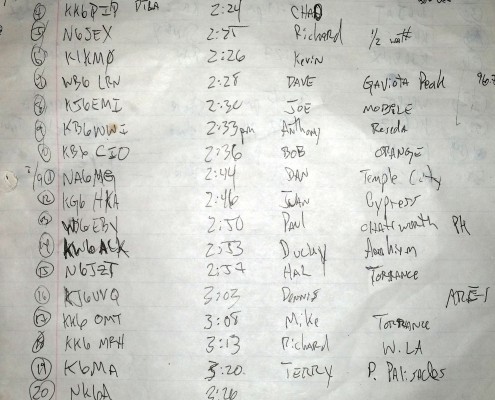 4 KK6PIP DTLA 2:24 CHAD
5 N6JEX 2:25 Richard 1/2 watt
6 K1KMØ 2:26 Kevin
WB6 LRN 2:28 DAVE Gaviota Peak 96.7
8 KJ6EMI 2:30 JOE MOBILE
9 KB6WWI 2:33pm Anthony Reseda
KB6 CIO 2:36 BOB ORANGE
11 NA6MG 2:44 DAN Temple City
12 KG6 HKA 2:46 JUAN Cypress
13 WB6EBY 2:50 Paul chatsworth PK
14 KW6ACK 2:53 Ducky Anaheim
15 N6JZT 2:57 HAL TORRANCE
16 KJ6UVQ 3:03 Dennis
17 KK6 OMT 3:08 Mike TORRANCE
18 KK6 MPH 3:13 Richard W.LA
19 K6MA 3:20. TERRY P. Palisades
20 NK6A 3:26